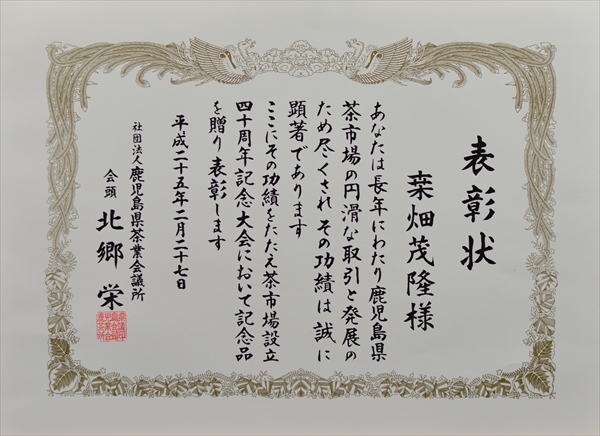 表彰状
桒畑茂隆様
あなたは長年にわたり鹿児島県
茶市場の円滑な取引と発展の
ため尽くされその功績は誠に
顕著であります
ここにその功績をたたえ茶市場設立
四十周年記念大会において記念品
を贈り表彰します
平成二十五年二月二十七日
社団法人鹿児島県茶業会議所
会頭 北郷 栄